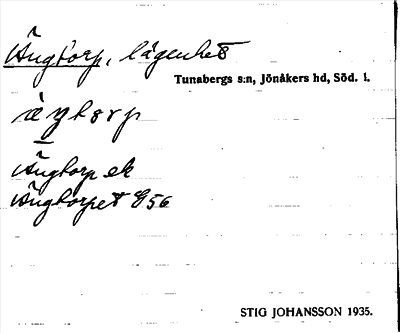 Ängtorp, lägenhet
Tunabergs s:n, Jönåkers hd, Söd. l.
Ängtorp ek
Ängtorpet G56
STIG JOHANSSON 1935.